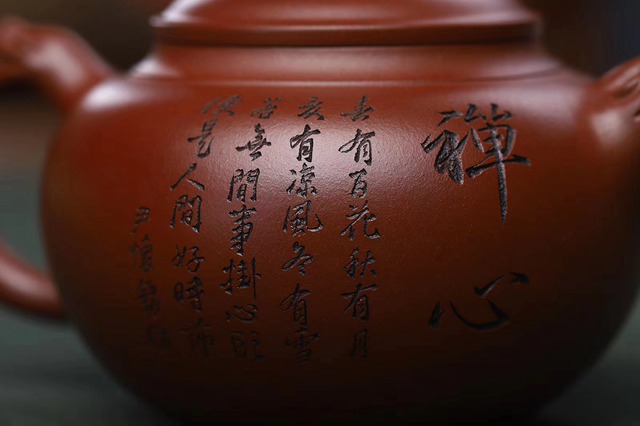 禅心
春有百花秋有月
夏有凉風冬有雪
若無閒事掛心頭
便是人間好時節